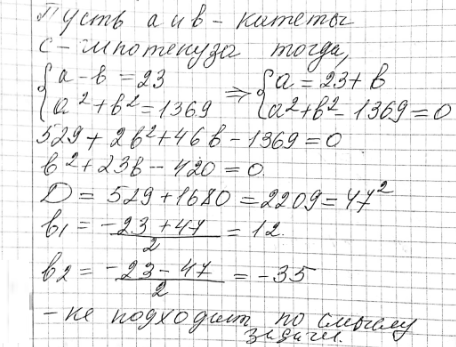 Пусть a и b - катеты
c - гипотенуза тогда,
{a - b = 23 ⇒ {a = 23 + b
{a² + b² = 1369 {a² + b² - 1369 = 0
529 + 2b² + 46b - 1369 = 0
b² + 23b - 420 = 0
D = 529 + 1680 = 2209 = 47²
b₁ = (-23 + 47)/2 = 12.
b₂ = (-23 - 47)/2 = -35
- не подходит по смыслу
задачи.